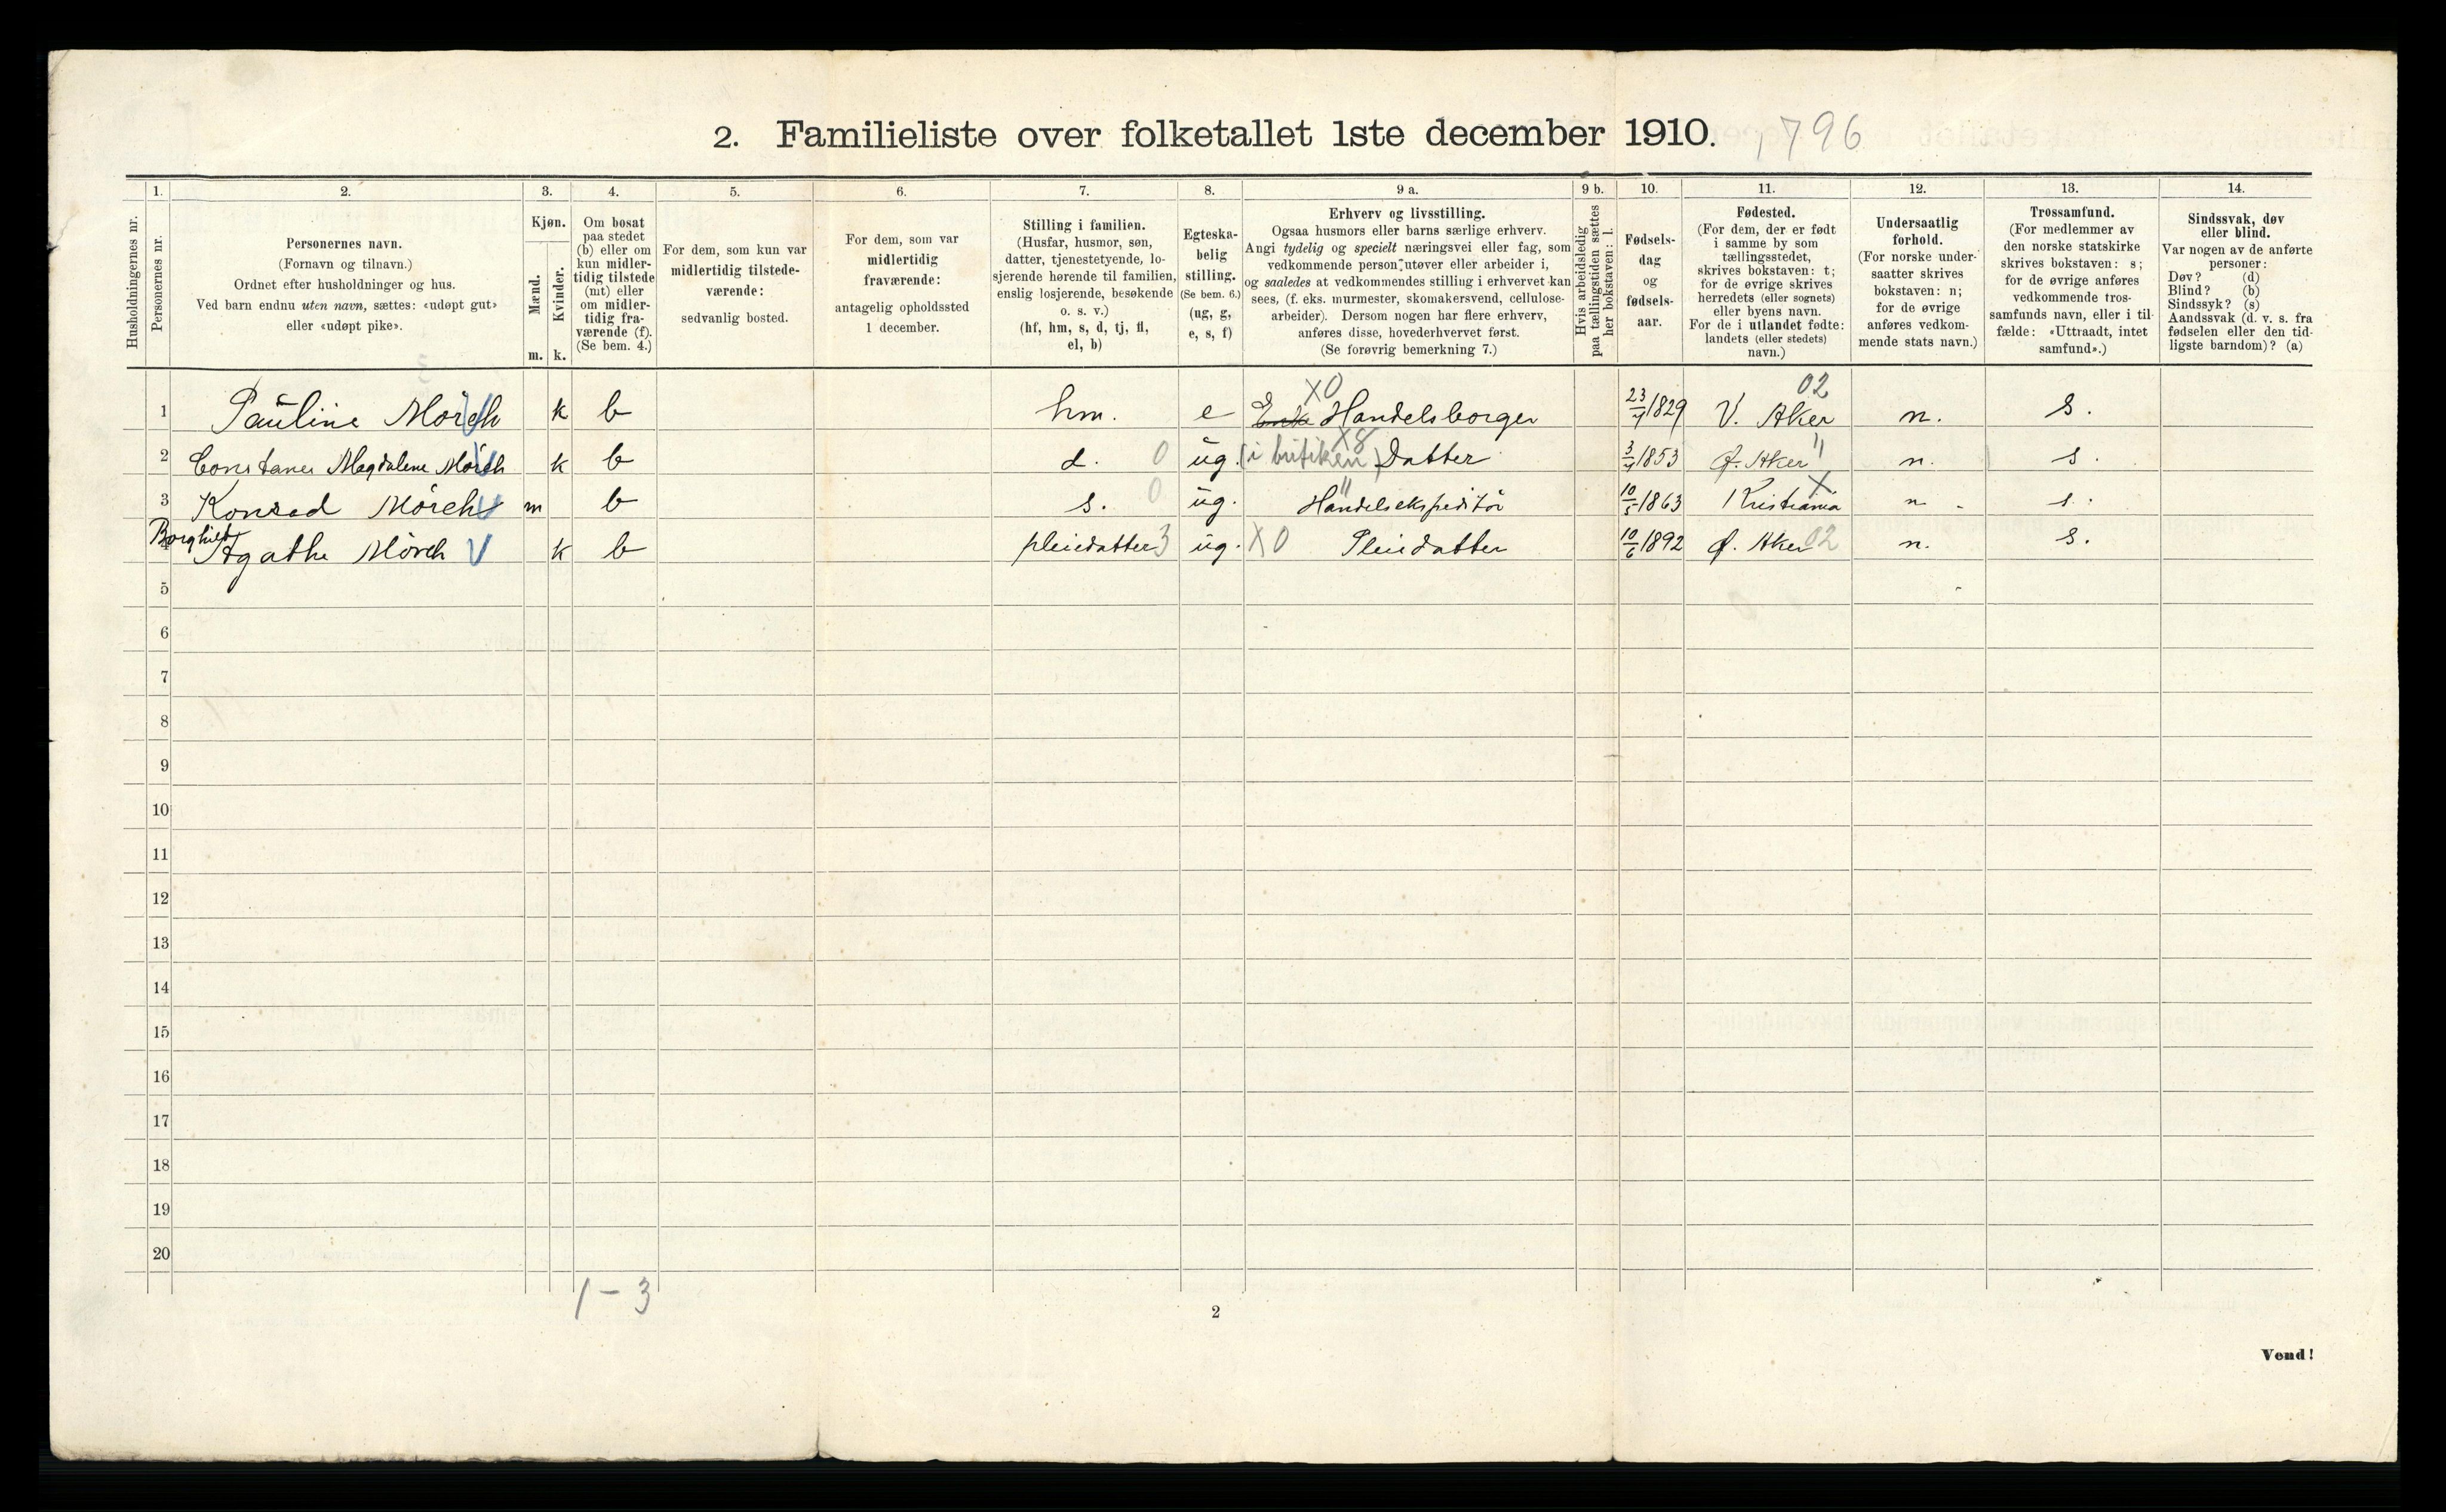 2. Familieliste over folketallet 1ste december 1910. 796
1. 2. 3. 4. 5. 6. 7. 8. 9 a. 9 b. 10. 11. 12. 13. 14.
Husholdningernes nr.
Personernes nr.
Personernes navn.
(Fornavn og tilnavn.)
Ordnet efter husholdninger og hus.
Ved barn endnu uten navn, sættes: «udøpt gut»
eller «udøpt pike».
Kjøn.
Mænd.
m.
Kvinder.
k.
Om bosat
paa stedet
(b) eller om
kun midler-
tidig tilstede
(mt) eller
om midler-
tidig fra-
værende (f).
(Se bem. 4.)
For dem, som kun var
midlertidig tilstede-
værende:
sedvanlig bosted.
For dem, som var
midlertidig
fraværende:
antagelig opholdssted
1 december.
Stilling i familien.
(Husfar, husmor, søn,
datter, tjenestetyende, lo-
sjerende hørende til familien,
enslig losjerende, besøkende
o. s. v.)
(hf, hm, s, d, tj, fl,
el, b)
Egteska-
belig
stilling.
(Se bem. 6.)
(ug, g,
e, s, f)
Erhverv og livsstilling.
Ogsaa husmors eller barns særlige erhverv.
Angi tydelig og specielt næringsvei eller fag, som
vedkommende person utøver eller arbeider i,
og saaledes at vedkommendes stilling i erhvervet kan
sees, (f. eks. murmester, skomakersvend, cellulose-
arbeider). Dersom nogen har flere erhverv,
anføres disse, hovederhvervet først.
(Se forøvrig bemerkning 7.)
Hvis arbeidsledig
paa tællingstiden sættes
her bokstaven: l.
Fødsels-
dag
og
fødsels-
aar.
Fødested.
(For dem, der er født
i samme by som
tællingsstedet,
skrives bokstaven: t;
for de øvrige skrives
herredets (eller sognets)
eller byens navn.
For de i utlandet fødte:
landets (eller stedets)
navn.)
Undersaatlig
forhold.
(For norske under-
saatter skrives
bokstaven: n;
for de øvrige
anføres vedkom-
mende stats navn.)
Trossamfund.
(For medlemmer av
den norske statskirke
skrives bokstaven: s;
for de øvrige anføres
vedkommende tros-
samfunds navn, eller i til-
fælde: «Uttraadt, intet
samfund».)
Sindssvak, døv
eller blind.
Var nogen av de anførte
personer:
Døv? (d)
Blind? (b)
Sindssyk? (s)
Aandssvak (d. v. s. fra
fødselen eller den tid-
ligste barndom)? (a)
X0 02
1 Pauline Mörch k b hm. e Enke Handelsborger 23/4 1829 V. Aker n. s.
X8 "
2 Constance Magdalene Mörch k b d. 0 ug. (i butiken) Datter 3/4 1853 Ø. Aker n. s.
" X
3 Konrad Mörch m b s. 0 ug. Handelsekspeditör 10/5 1863 Kristiania n. s.
Borghild
4 Agathe Mörch k b pleiedatter 3 ug. X0 Pleiedatter 10/6 1892 Ø. Aker 02 n. s.
5
6
7
8
9
10
11
12
13
14
15
16
17
18
19
20
1 – 3
2
Vend!